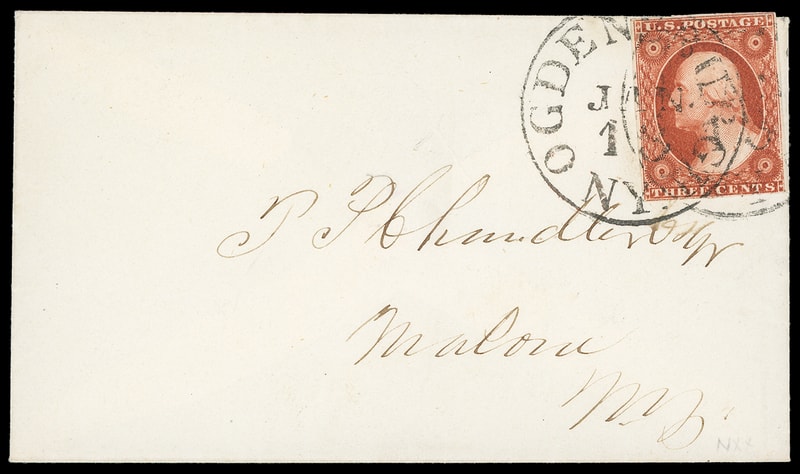 U.S. POSTAGE
THREE CENTS
OGDEN
JAN.
1
NY
Chandler Esqr
Malone
N.Y.